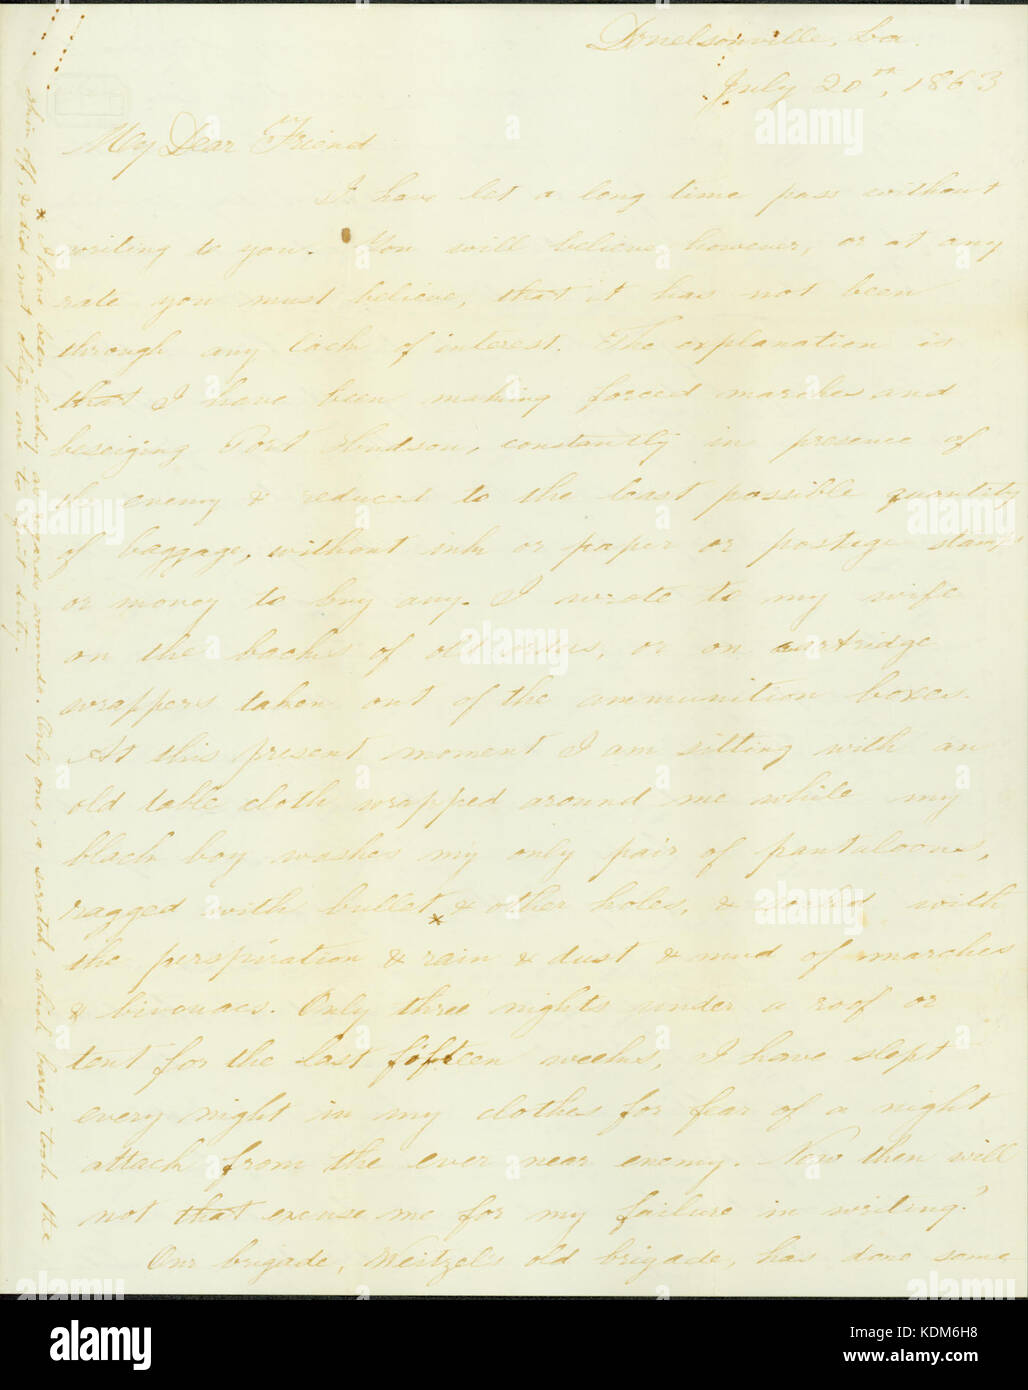 Donelsonville, La.
July 20th, 1863
My Dear Friend
I have let a long time pass without
writing to you. You will believe however, or at any
rate you must believe, that it has not been
through any lack of interest. The explanation is
that I have been making forced marches and
beseiging Port Hudson, constantly in presence of
the enemy & reduced to the least possible quantity
of baggage, without ink or paper or postage stamps
or money to buy any. I wrote to my wife
on the backs of old orders, or on cartridge
wrappers taken out of the ammunition boxes.
At this present moment I am sitting with an
old table cloth wrapped around me while my
black boy washes my only pair of pantaloons,
ragged with bullet * & other holes, & soiled with
the perspiration & rain & dust & mud of marches
& bivouacs. Only three nights under a roof or
tent for the last fifteen weeks, I have slept
every night in my clothes for fear of a night
attack from the ever near enemy. Now then will
not that excuse me for my failure in writing?
Our brigade, Weitzel's old brigade, has done some
* I have been lucky as regards wounds. Only one, a scratch, which barely took the
skin off, & did not oblige me to quit duty.
alamy stock photo
alamy
a
KDM6H8
www.alamy.com